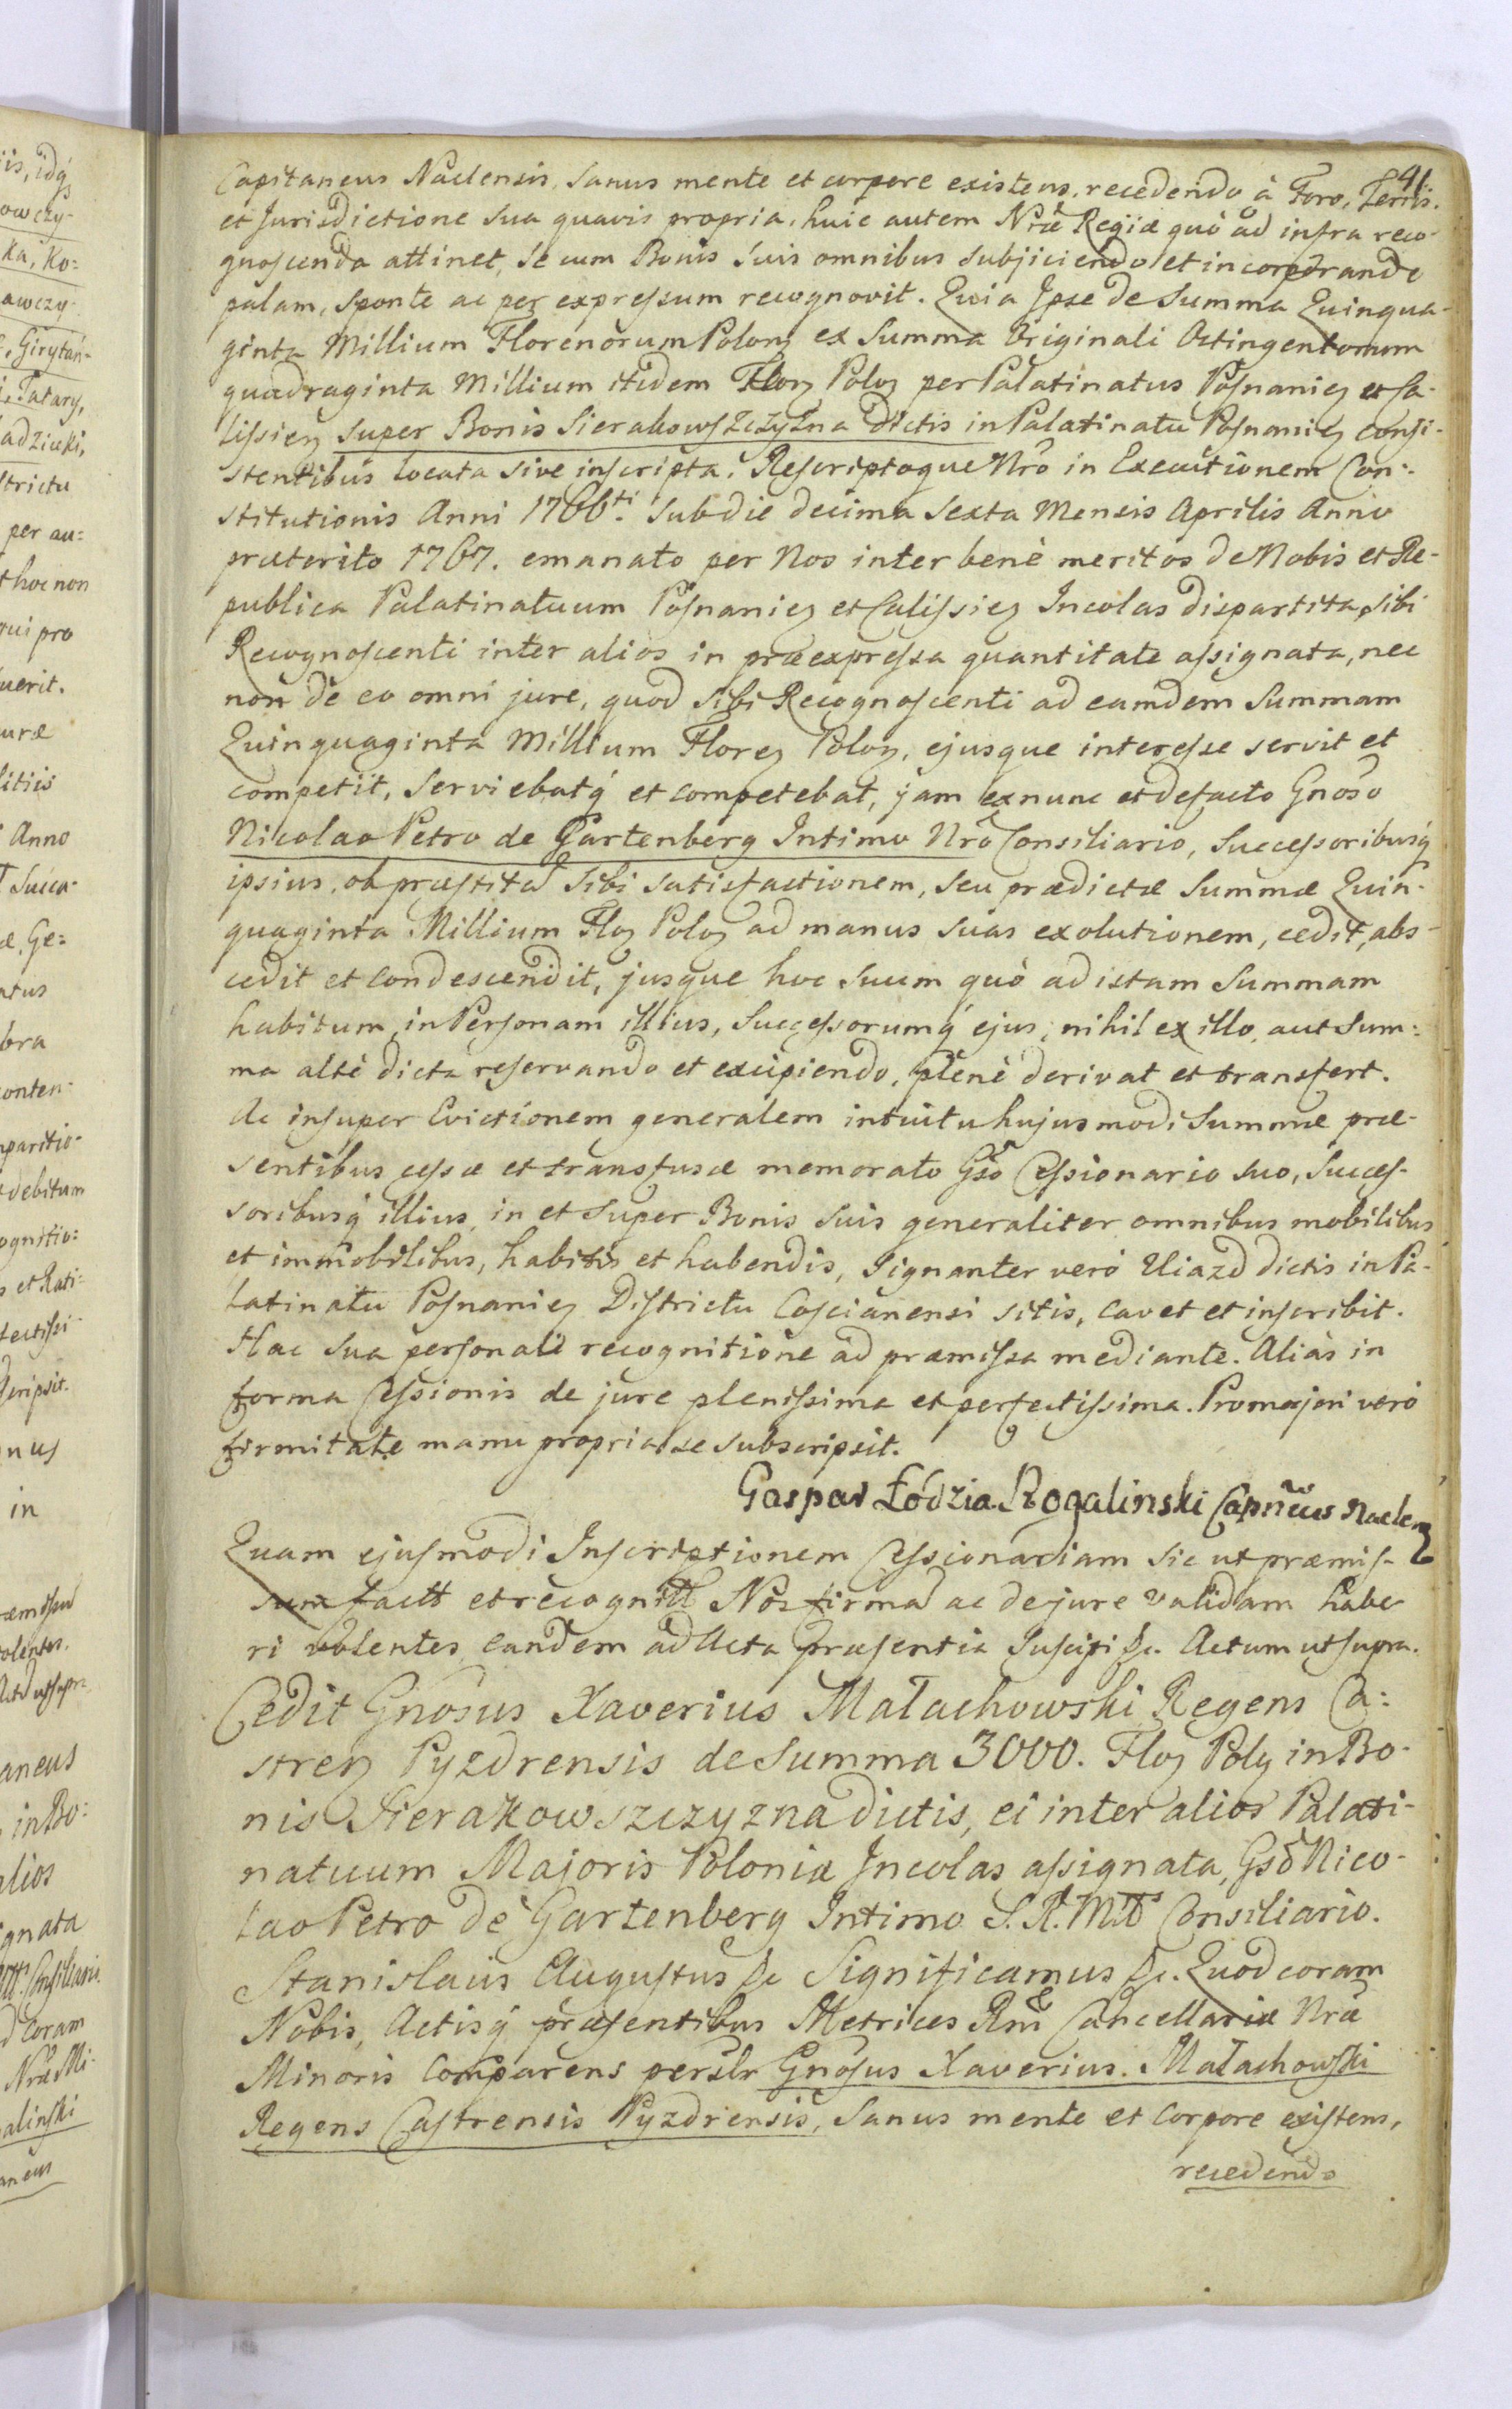 41.
Capitaneus Naclensis, Sanus mente et corpore existens, recedendo à Foro, Terris.
et Jurisdictione sua quavis propria, huic autem Nræ Regiæ quò ad infra reco-
gnoscenda attinet, se cum Bonis suis omnibus subjiciendo et incorporando
palam, sponte ac per expressum recognovit. Quia Ipse de Summa Quinqua-
ginta Millium Florenorum Polonʒ ex Summa Originali Octingentorum
quadraginta Millium itidem Florʒ Polʒ per Palatinatus Posnanieʒ et Ca-
lissieʒ super Bonis Sierakowszczyzna dictis in Palatinatu Posnanieʒ consi-
stentibus locata sive inscripta. Rescriptoque Nrô in Executionem Con:
stitutionis Anni 1766ti. sub die decima sexta Mensis Aprilis Anno
præterito 1767. emanato per Nos inter benè meritos de Nobis et Re-
publica Palatinatuum Posnanieʒ et Calissieʒ Incolas dispartita, sibi
Recognoscenti inter alios in præexpressa quantitate assignata, nec
non de eo omni jure, quod sibi Recognoscenti ad eamdem Summam
Quinquaginta Millium Floreʒ Polonʒ, ejusque interesse servit et
competit, serviebatq́ et competebat, jam exnunc et defacto Gnoso
Nicolao Petro de Gartenberg Intimo Nrô Consiliario, Successoribusq́
ipsius, ob præstitã sibi satisfactionem, seu prædictæ Summæ Quin-
quaginta Millium Floʒ Poloʒ ad manus suas exolutionem, cedit, abs-
cedit et condescendit, jusque hoc suum quò ad istam Summam
habitum, in Personam illius, Successorumq́ ejus, nihil ex illo, aut Sum:
ma altè dicta reservando et excipiendo, plenè derivat et transfert.
Ac insuper Evictionem generalem intuitu hujusmodi Summæ præ-
sentibus cessæ et transfusæ memorato Gso Cessionario suo, Succes-
soribusq́ illius, in et super Bonis suis generaliter omnibus mobilibus
et immobilibus, habitis et habendis, signanter verò Uiazd dictis in Pa-
latinatu Posnanieʒ Districtu Coscianensi sitis, cavet et inscribit.
Hac sua personali recognitione ad præmissa mediante. Aliàs in
forma Cessionis de jure plenissima et perfectissima. Pro majori verò
firmitate manu propria se subscripsit.
Gaspar Łodzia Rogalinski Capñeus Naclenʒ
Quam ejusmodi Inscriptionem Cessionariam sic ut præmis-
sum factã et recognitã Nos firmã ac de jure validam habe-
ri volentes, eandem ad Acta præsentia suscipi &c. Actum ut supra.
Cedit Gnosus Xaverius Małachowski Regens Ca:
strenʒ Pyzdrensis de Summa 3000. Floʒ Polʒ in Bo-
nis Sierakowszczyzna dictis, ei inter alios Palati-
natuum Majoris Poloniæ Incolas assignata, Gsô Nico-
lao Petro de Gartenberg Intimo S. R. Mtt̃s Consiliario.
Stanislaus Augustus &c Significamus &c. Quod coram
Nobis, Actisq́ præsentibus Metrices Rñi Cancellariæ Nræ
Minoris Comparens persłr Gnosus Xaverius Małachowski
Regens Castrensis Pyzdrensis, Sanus mente et Corpore existens,
recedendo